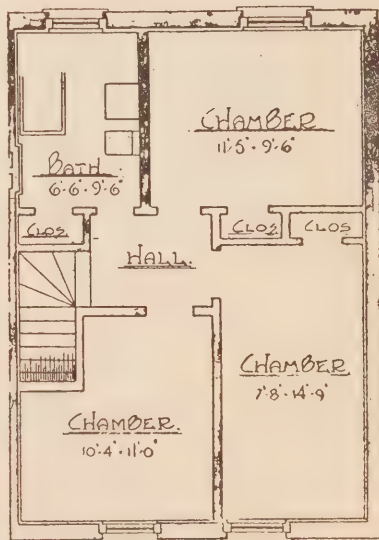 CHAMBER
11'5" · 9'-6"
BATH
6'-6" · 9'-6"
CLOS
CLOS
CLOS
HALL
CHAMBER
7'-8" · 14'-9"
CHAMBER.
10'-4" · 11'-0"